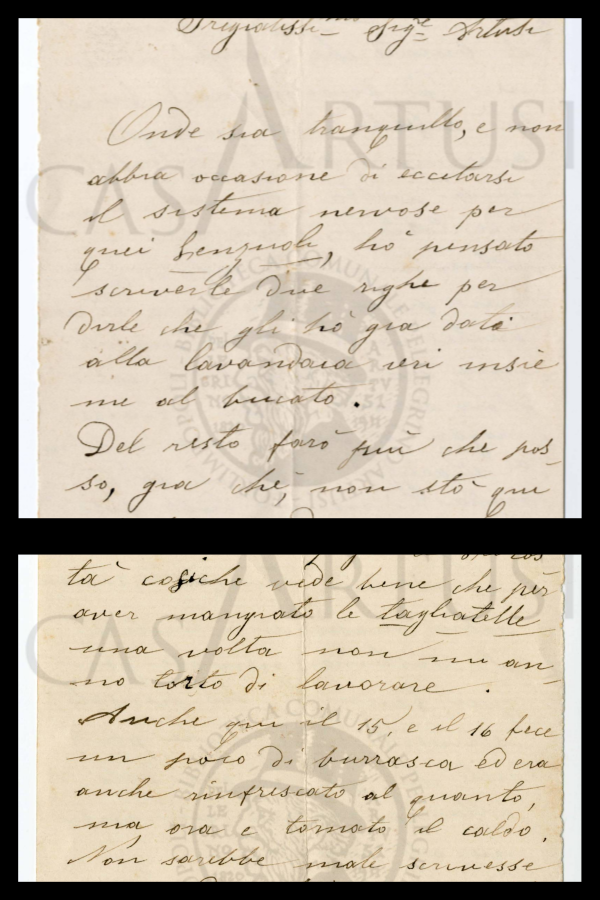 Pregiatissimo Sigre Artusi
Onde sia tranquillo, e non
abbia occasione di eccitarsi
il sistema nervose per
quei Lenzuoli, hó pensato
scriverle due righe per
dirle che gli hó gia dati
alla lavandaia ieri insie
me al bucato.
Del resto faró piú che pos-
so, gia ché, non stó qui
tá cosiche vede bene che per
aver mangiato le tagliatelle
una volta non mi an-
no torto di lavorare.
Anche qui il 15, e il 16 fece
un póco di burrasca ed era
anche rinfrescato al quanto,
ma, ora e tornato il caldo.
Non sarebbe male scrivesse
CASA ARTUSI
CASA ARTUSI